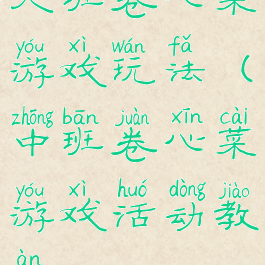 大班卷心菜
yóu xì wán fǎ
游戏玩法（
zhōng bān juàn xīn cài
中班卷心菜
yóu xì huó dòng jiào
游戏活动教
àn